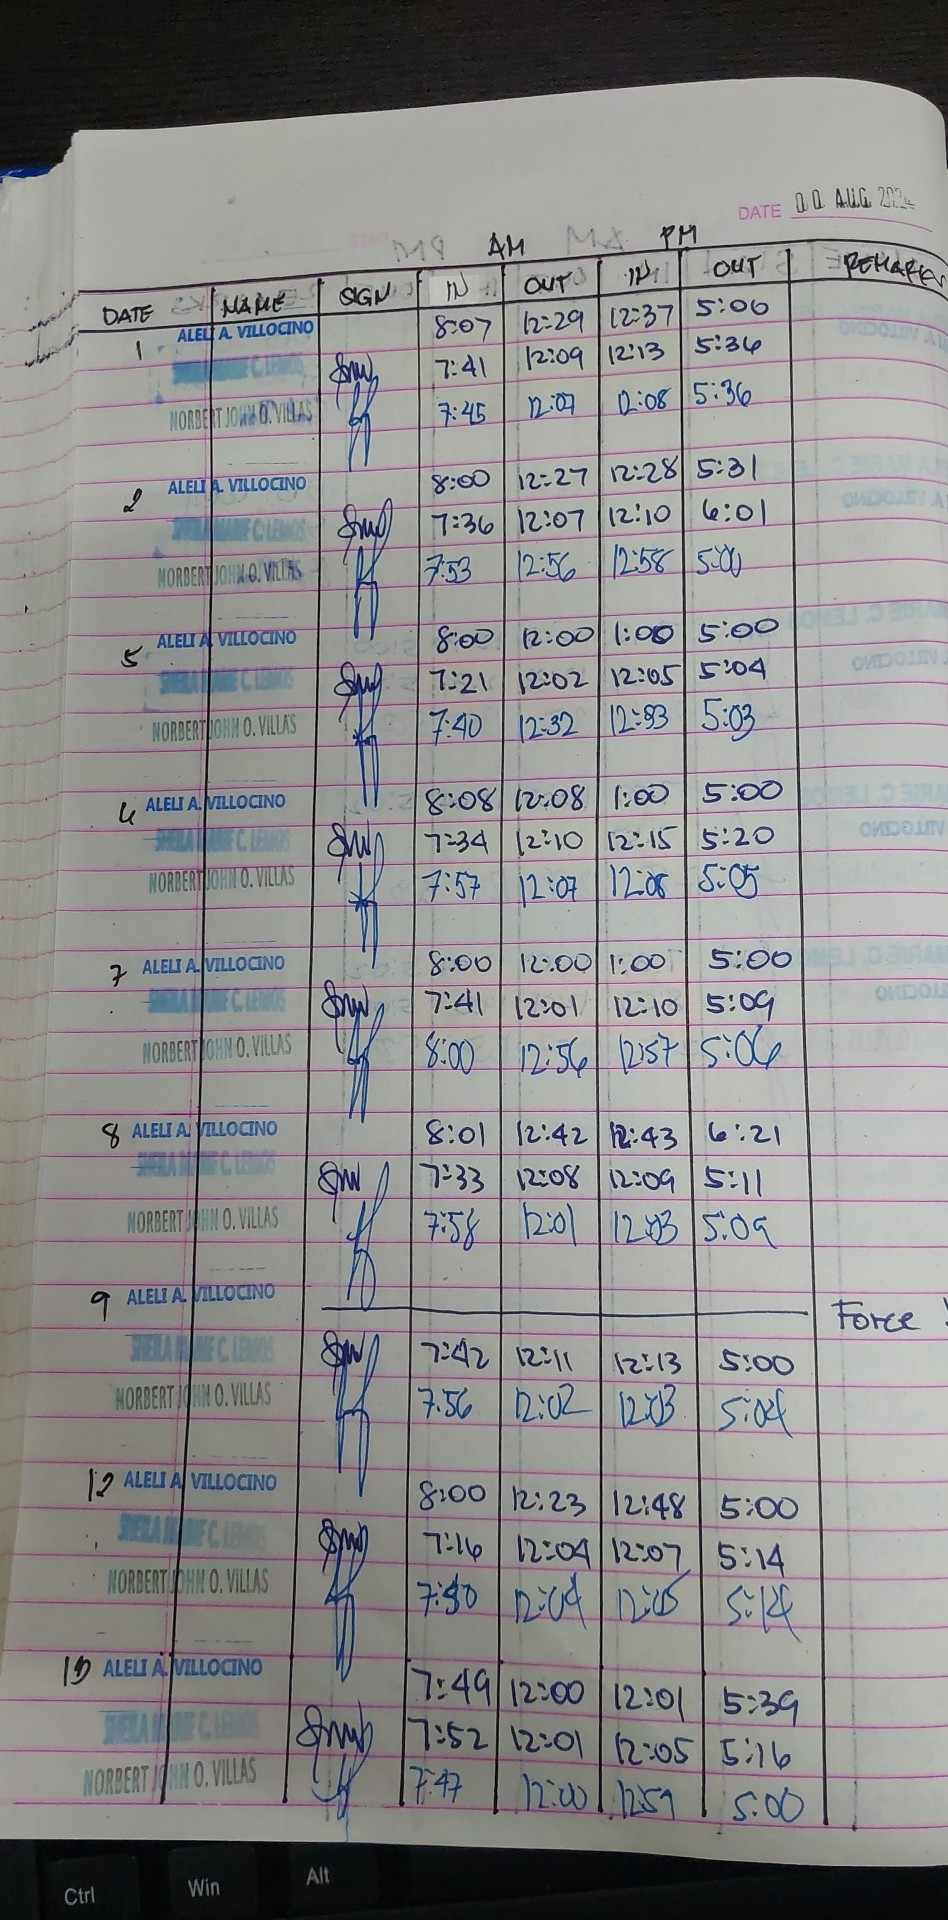 DATE 00 AUG 202
AM PM
DATE NAME SIGN IN OUT IN OUT REMARKS
1 ALELI A. VILLOCINO 8:07 12:29 12:37 5:06
SHEILA MARIE C. LEMOS 7:41 12:09 12:13 5:36
NORBERT JOHN O. VILLAS 7:45 12:07 12:08 5:36
2 ALELI A. VILLOCINO 8:00 12:27 12:28 5:31
SHEILA MARIE C. LEMOS 7:36 12:07 12:10 6:01
NORBERT JOHN O. VILLAS 7:53 12:56 12:58 5:00
5 ALELI A. VILLOCINO 8:00 12:00 1:00 5:00
SHEILA MARIE C. LEMOS 7:21 12:02 12:05 5:04
NORBERT JOHN O. VILLAS 7:40 12:32 5:03
ALELI A. VILLOCINO 8:08 12:08 1:00 5:00
SHEILA MARIE C. LEMOS 7:34 12:10 12:15 5:20
NORBERT JOHN O. VILLAS 7:57 12:07 12:08 5:05
7 ALELI A. VILLOCINO 8:00 12:00 1:00 5:00
SHEILA MARIE C. LEMOS 7:41 12:01 12:10 5:09
NORBERT JOHN O. VILLAS 8:00 12:56 12:57 5:06
8 ALELI A. VILLOCINO 8:01 12:42 12:43 6:21
SHEILA MARIE C. LEMOS 7:33 12:08 12:09 5:11
NORBERT JOHN O. VILLAS 7:58 12:01 12:03 5:09
9 ALELI A. VILLOCINO Force
SHEILA MARIE C. LEMOS 7:42 12:11 12:13 5:00
NORBERT JOHN O. VILLAS 7:56 12:02 12:03 5:04
12 ALELI A. VILLOCINO 8:00 12:23 12:48 5:00
SHEILA MARIE C. LEMOS 7:16 12:04 12:07 5:14
NORBERT JOHN O. VILLAS 12:04 12:05 5:14
13 ALELI A. VILLOCINO 7:49 12:00 12:01 5:39
SHEILA MARIE C. LEMOS 7:52 12:01 12:05 5:16
NORBERT JOHN O. VILLAS 7:47 12:00 12:59 5:00
Ctrl Win Alt